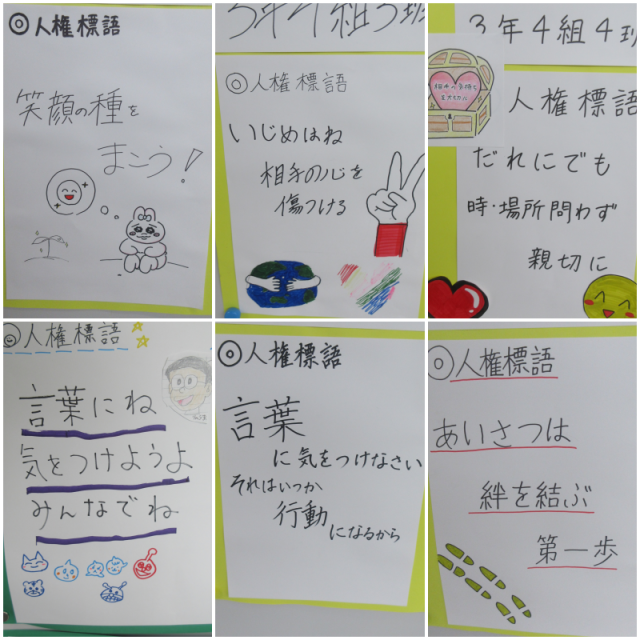 ◎人権標語
笑顔の種を
まこう!
3年4組3班
◎人権標語
いじめはね
相手の心を
傷つける
3年4組4班
人権標語
だれにでも
時・場所問わず
親切に
人権標語
言葉にね
気をつけようよ
みんなでね
◎人権標語
言葉
に気をつけなさい
それはいつか
行動
になるから
◎人権標語
あいさつは
絆を結ぶ
第一歩